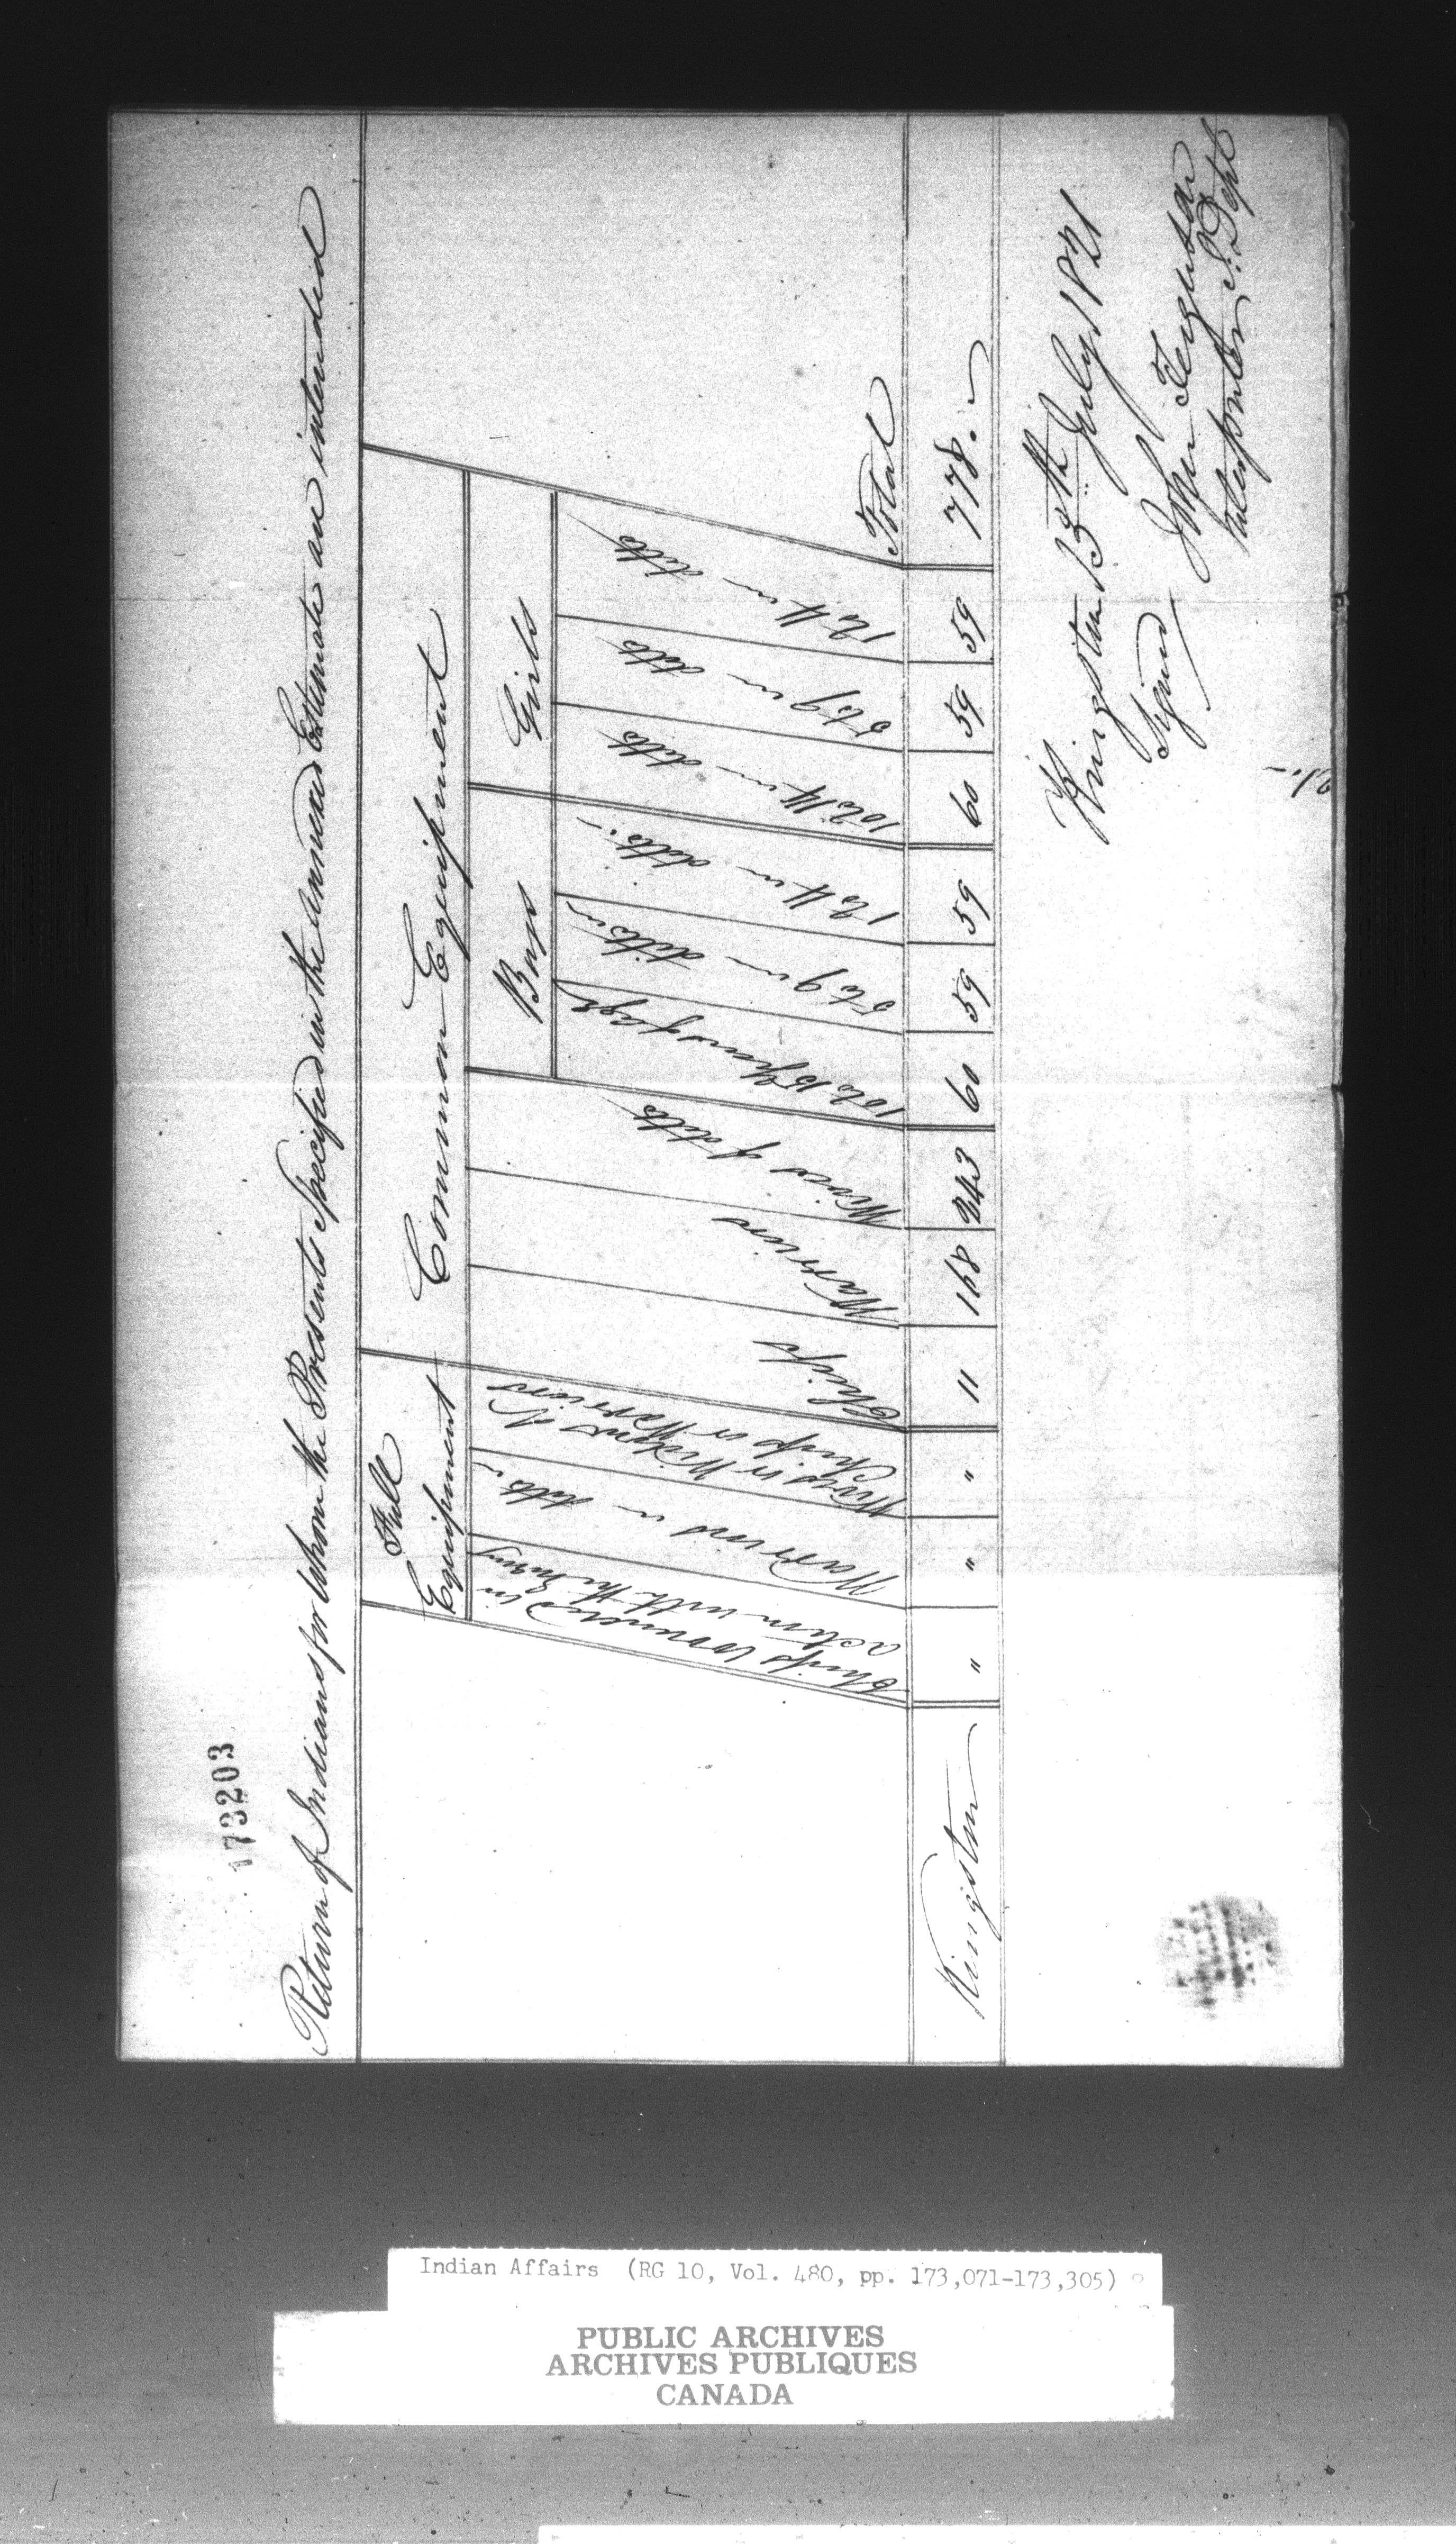 173203
Return of Indians for whom the Presents Specified in the annexed Estimate are intended
Full
Equipment
Common Equipment
Boys
Girls
Chiefs wounded in
action with the Enemy
Warriors in ditto
Wives or Widows of
Chiefs or Warriors
Chiefs
Warriors
Wives of ditto
10 to 15 years of age
5 to 9 in ditto
1 to 4 in ditto
10 to 14 in ditto
5 to 9 in ditto
1 to 4 in ditto
Total
Kingston " " " 11 168 243 60 59 59 60 59 59 778.
Kingston 13th July 1821
Signed John Ferguson
Interpreter I. Dept
Indian Affairs (RG 10, Vol. 480, pp. 173,071-173,305)
PUBLIC ARCHIVES
ARCHIVES PUBLIQUES
CANADA